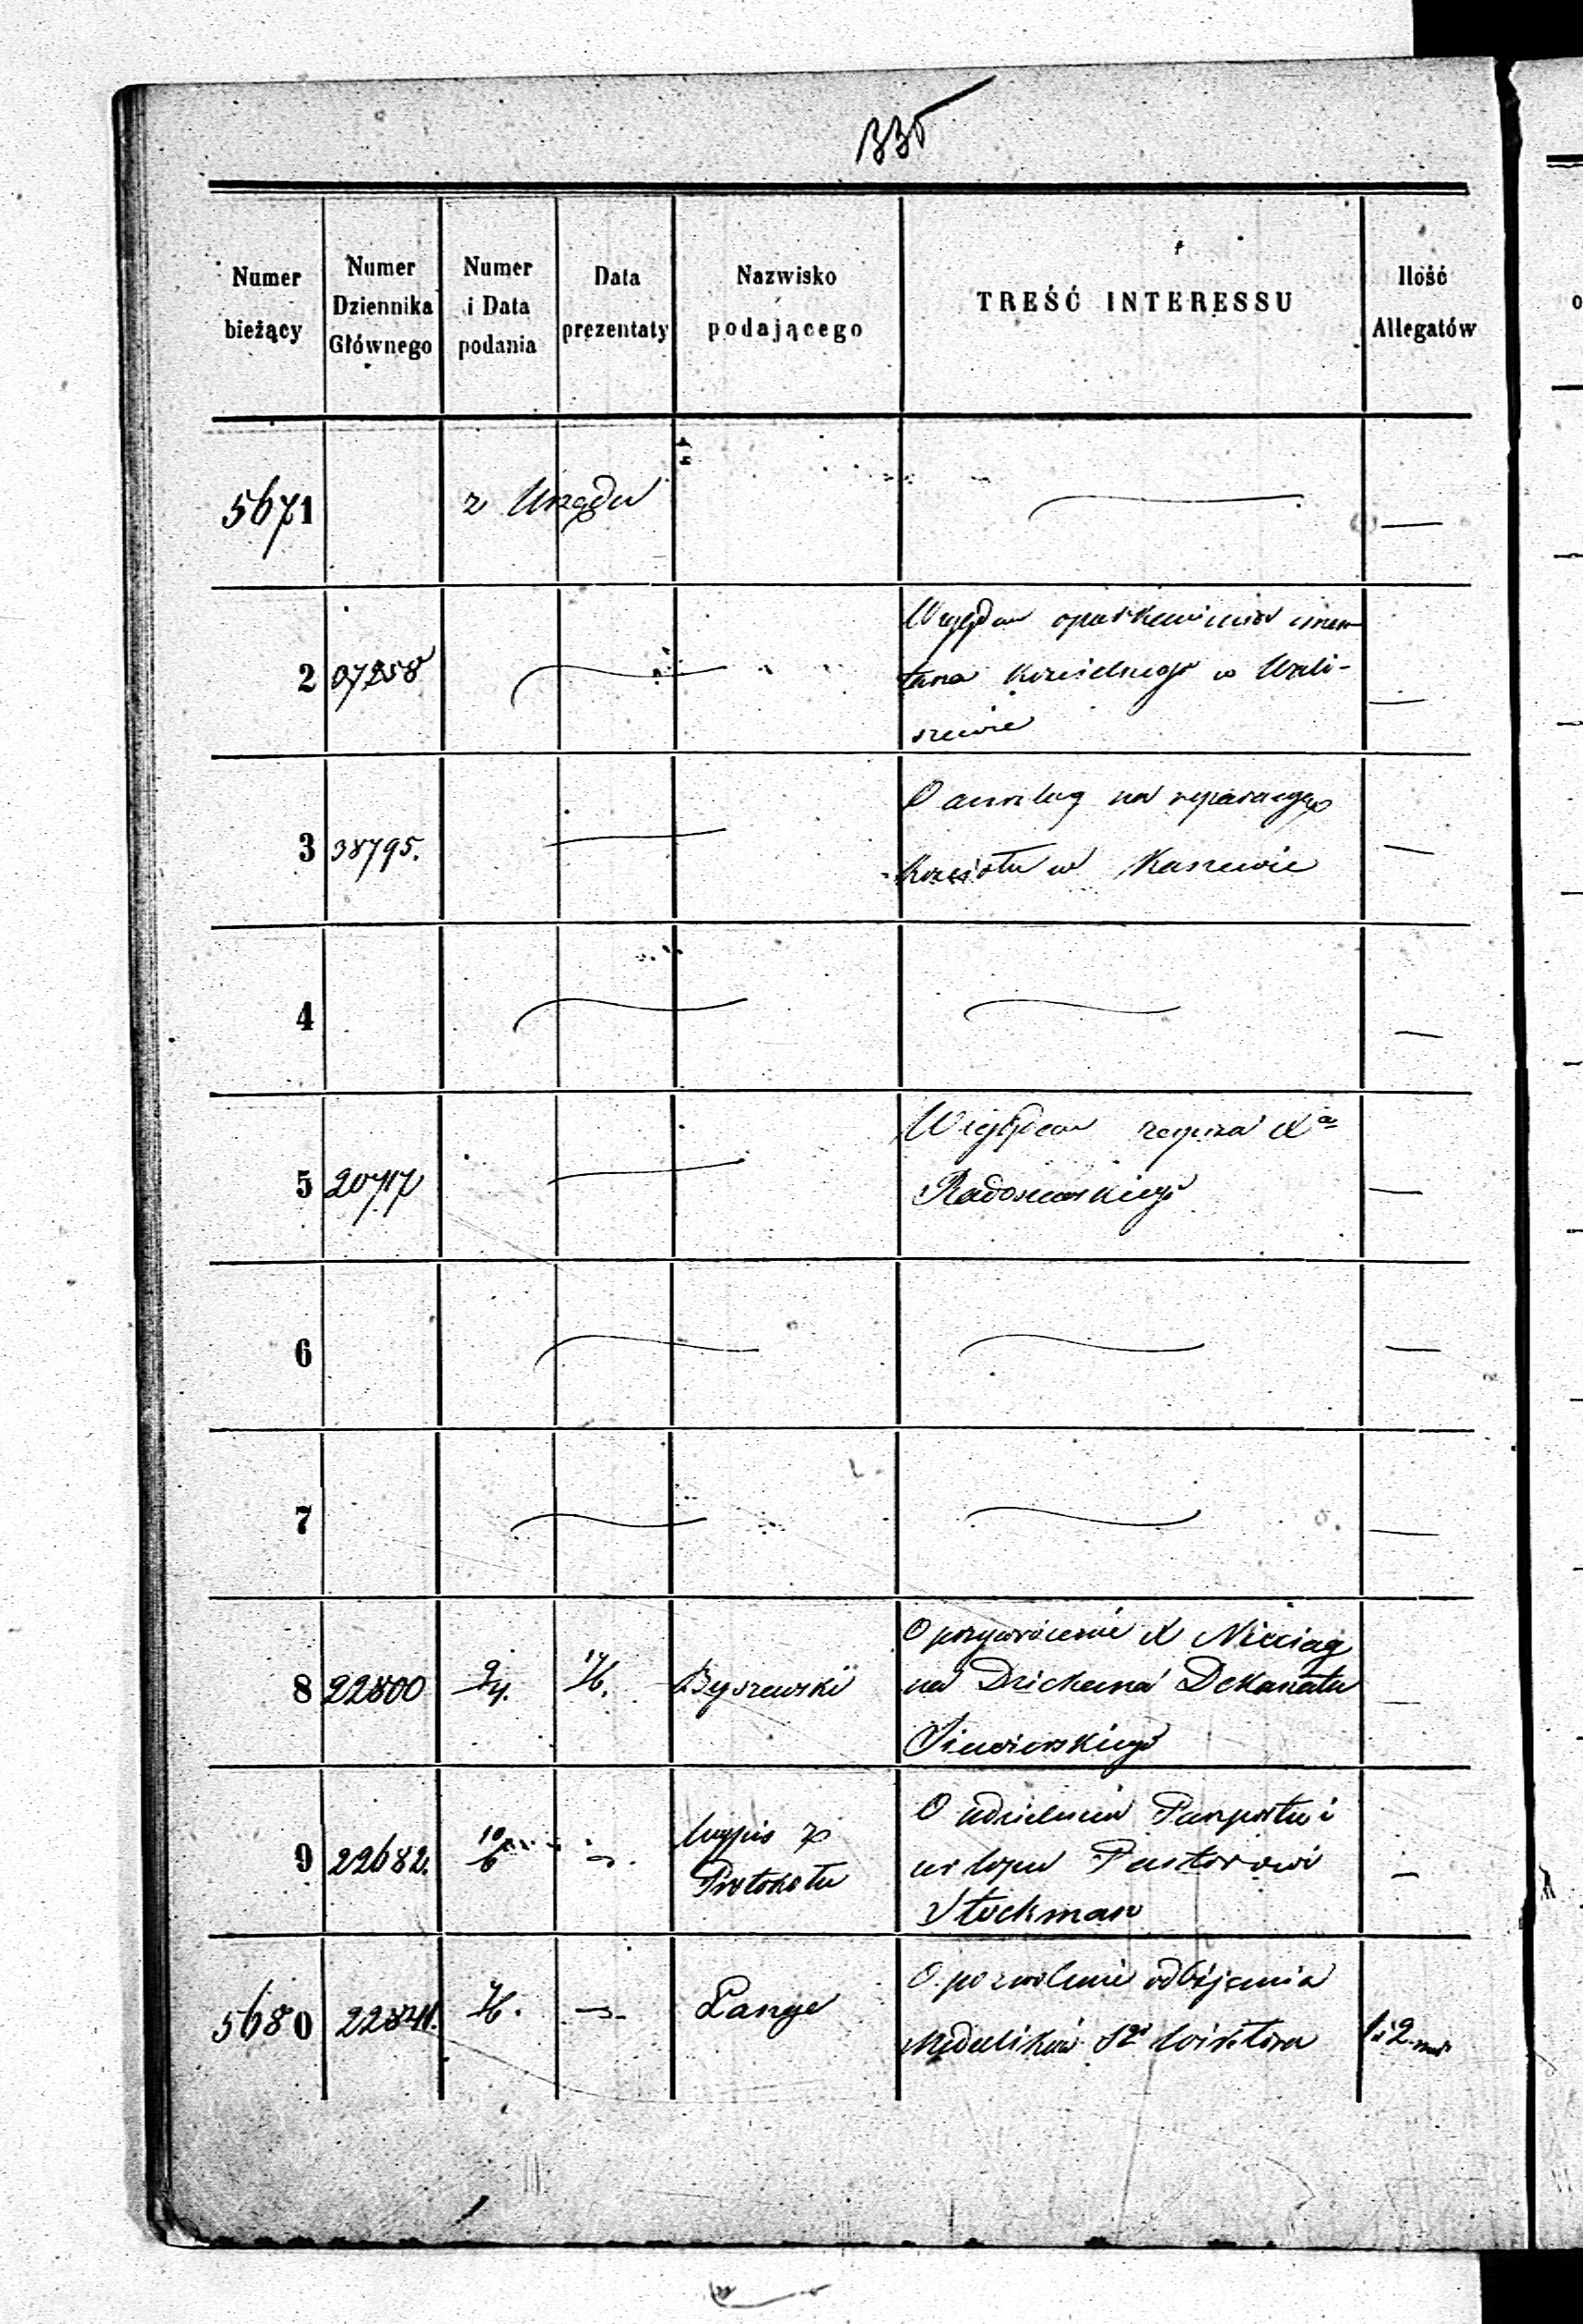 335
Numer bieżący
Numer Dziennika Głównego
Numer i Data podania
Data prezentaty
Nazwisko podającego
TREŚĆ INTERESSU
Ilość Allegatów
5671 z Urzędu — —
2 37258 — Względem oparkanienia cmen-
tarza kościelnego w Wali-
szewie —
3 38795. — O anszlag na reparacyę
kościoła w Kaszewie —
4 — — —
5 20717 — Względem Xa
Radoszewskiego —
6 — — —
7 — — —
8 22800 Byszewski O przywrócenie X
na Dziekana Dekanatu
Siewierskiego —
9 22682. 10/6 Wypis z
Protokołu
O udzielenie Paszportu i
urlopu Pastorowi
Stockman —
5680 Lange O pozwolenie odbijania
Medalików Sgo Wiktora